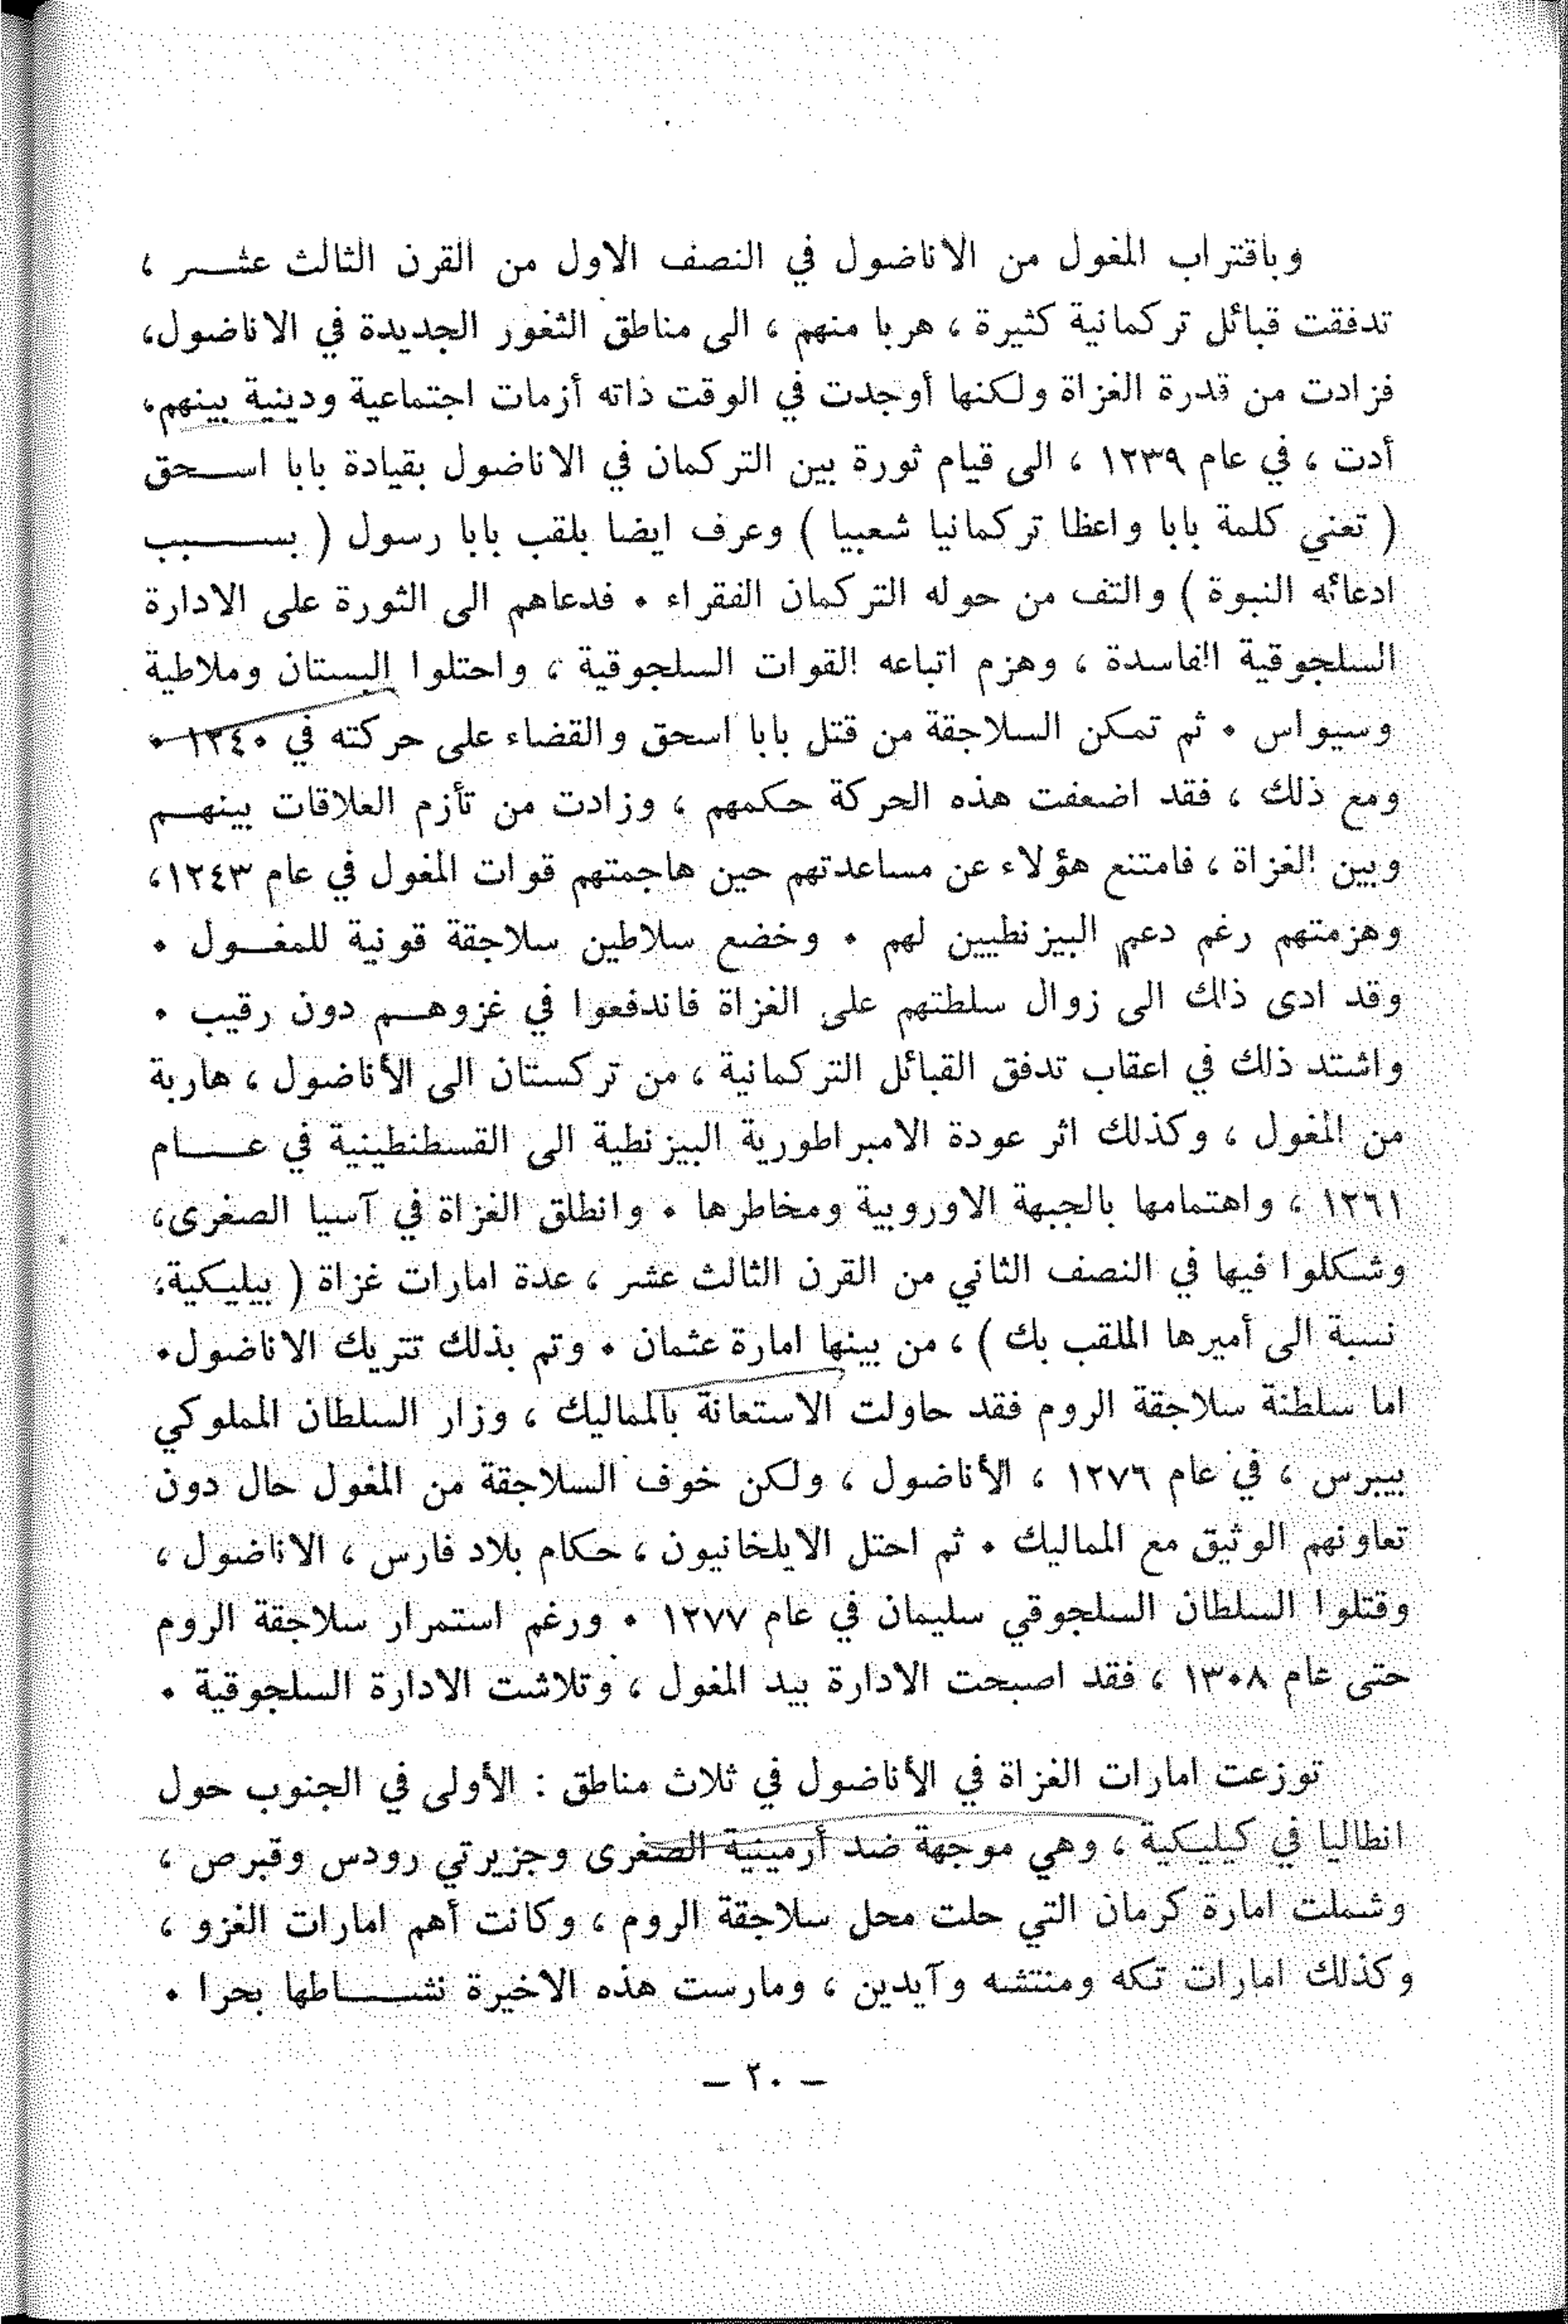 وباقتراب المغول من الاناضول في النصف الاول من القرن الثالث عشر ،
تدفقت قبائل تركمانية كثيرة ، هربا منهم ، الى مناطق الثغور الجديدة في الاناضول،
فزادت من قدرة الغزاة ولكنها أوجدت في الوقت ذاته أزمات اجتماعية ودينية بينهم،
أدت ، في عام ١٢٣٩ ، الى قيام ثورة بين التركمان في الاناضول بقيادة بابا اسحق
( تعني كلمة بابا واعظا تركمانيا شعبيا ) وعرف ايضا بلقب بابا رسول ( بسبب
ادعائه النبوة ) والتف من حوله التركمان الفقراء . فدعاهم الى الثورة على الادارة
السلجوقية الفاسدة ، وهزم اتباعه القوات السلجوقية ، واحتلوا البستان وملاطية
وسيواس . ثم تمكن السلاجقة من قتل بابا اسحق والقضاء على حركته في ١٢٤٠ .
ومع ذلك ، فقد اضعفت هذه الحركة حكمهم ، وزادت من تأزم العلاقات بينهم
وبين الغزاة ، فامتنع هؤلاء عن مساعدتهم حين هاجمتهم قوات المغول في عام ١٢٤٣،
وهزمتهم رغم دعم البيزنطيين لهم . وخضع سلاطين سلاجقة قونية للمغول .
وقد ادى ذلك الى زوال سلطتهم على الغزاة فاندفعوا في غزوهم دون رقيب .
واشتد ذلك في اعقاب تدفق القبائل التركمانية ، من تركستان الى الأناضول ، هاربة
من المغول ، وكذلك اثر عودة الامبراطورية البيزنطية الى القسطنطينية في عام
١٢٦١ ، واهتمامها بالجبهة الاوروبية ومخاطرها . وانطلق الغزاة في آسيا الصغرى،
وشكلوا فيها في النصف الثاني من القرن الثالث عشر ، عدة امارات غزاة ( بيليكية،
نسبة الى أميرها الملقب بك ) ، من بينها امارة عثمان . وتم بذلك تتريك الاناضول.
اما سلطنة سلاجقة الروم فقد حاولت الاستعانة بالمماليك ، وزار السلطان المملوكي
بيبرس ، في عام ١٢٧٦ ، الأناضول ، ولكن خوف السلاجقة من المغول حال دون
تعاونهم الوثيق مع المماليك . ثم احتل الايلخانيون ، حكام بلاد فارس ، الاناضول ،
وقتلوا السلطان السلجوقي سليمان في عام ١٢٧٧ . ورغم استمرار سلاجقة الروم
حتى عام ١٣٠٨ ، فقد اصبحت الادارة بيد المغول ، وتلاشت الادارة السلجوقية .
توزعت امارات الغزاة في الأناضول في ثلاث مناطق : الأولى في الجنوب حول
انطاليا في كيليكية ، وهي موجهة ضد أرمينية الصغرى وجزيرتي رودس وقبرص ،
وشملت امارة كرمان التي حلت محل سلاجقة الروم ، وكانت أهم امارات الغزو ،
وكذلك امارات تكه ومنتشه وآيدين ، ومارست هذه الاخيرة نشاطها بحرا .
– ٢٠ –